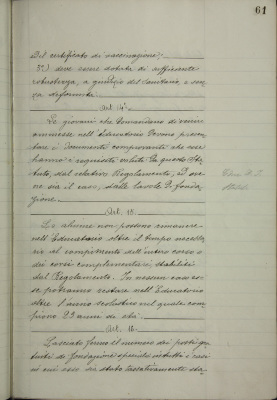 61
del certificato di vaccinazione;
5°) deve essere dotata di sufficiente
robustezza, a giudizio del sanitario, e sen-
za deformità.
Art. 14°
Le giovani che domandano di venire
ammesse nell'Educatorio devono presen-
tare i documenti comprovanti che esse
hanno i requisiti voluti da questo Sta-
tuto, dal relativo Regolamento, e, se
ne sia il caso, dalle tavole di fonda-
zione.
Art. 15.
Le alunne non possono rimanere
nell'Educatorio oltre il tempo necessa-
rio al compimento dell'intero corso o
dei corsi complementari, stabiliti
dal Regolamento. In nessun caso es-
se potranno restare nell'Educatorio
oltre l'anno scolastico nel quale com-
piono 21 anni di età.
Art. 16.
Lasciato fermo il numero dei posti gra-
tuiti di fondazione speciale in tutti i casi
in cui esso sia stato tassativamente sta-